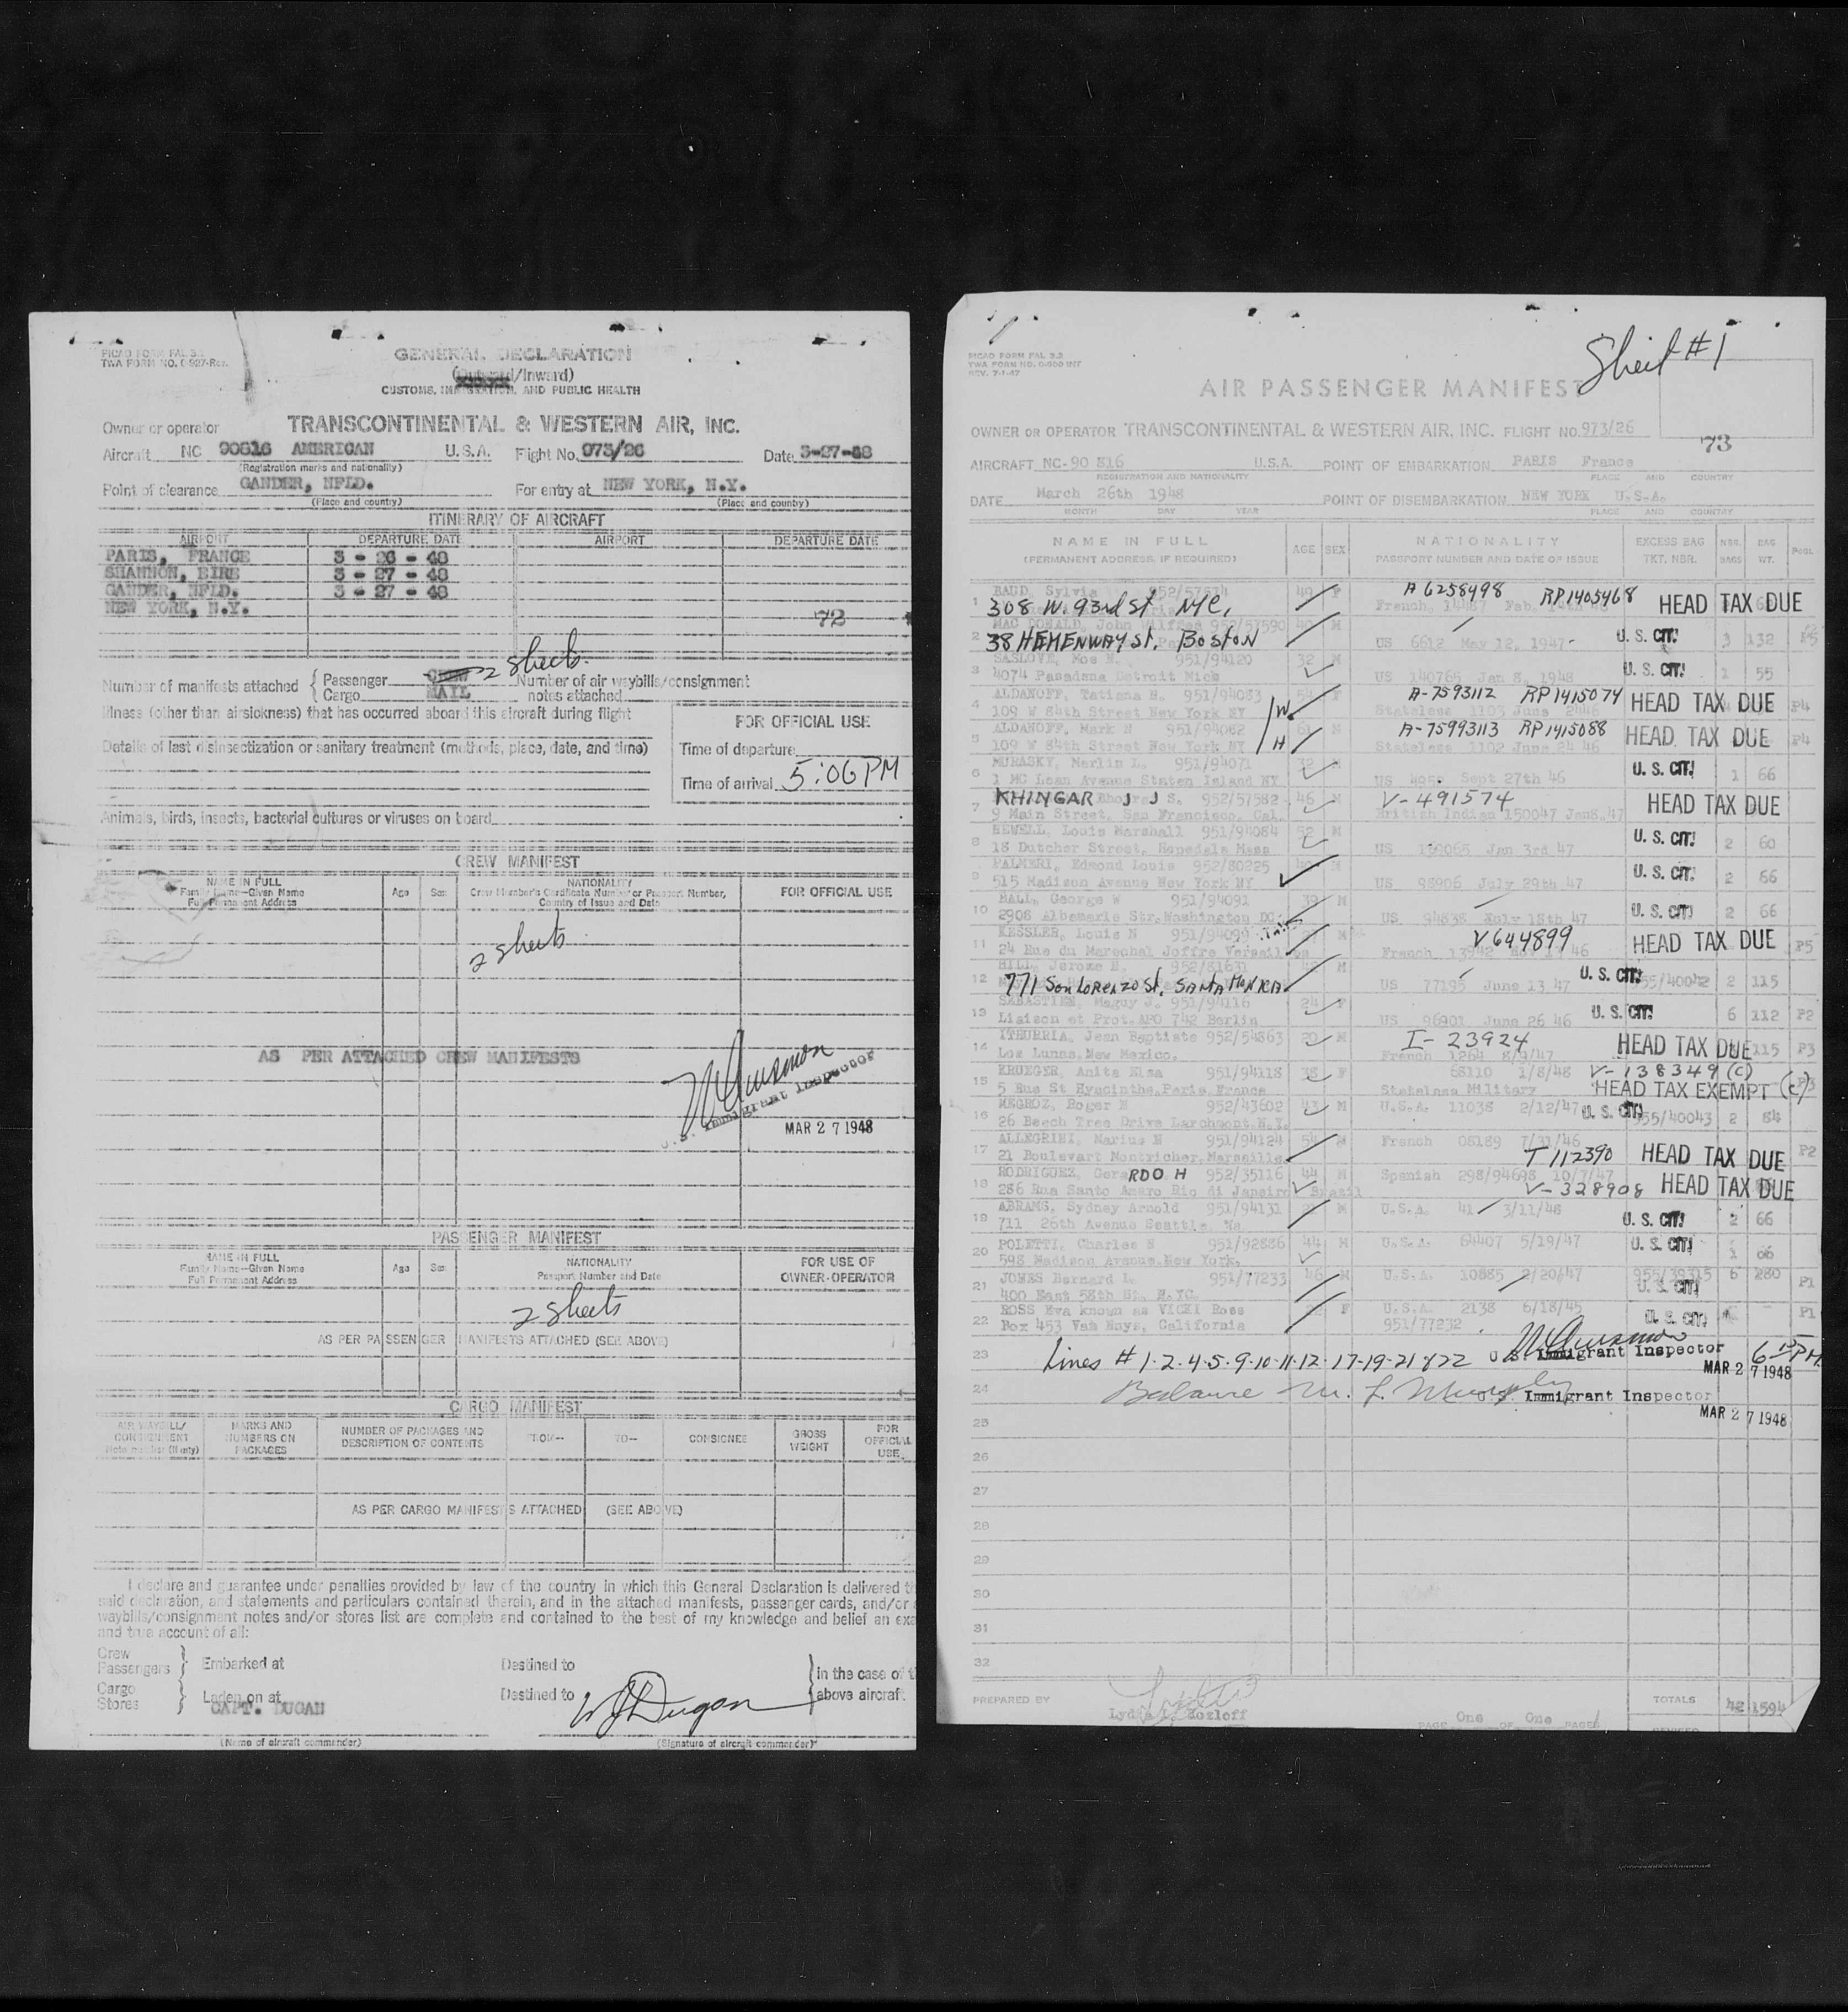 PICAO FORM FAL 3.1
TWA FORM NO. 0-927-Rev.
GENERAL DECLARATION
(Outward/Inward)
CUSTOMS, IMMIGRATION, AND PUBLIC HEALTH
Owner or operator TRANSCONTINENTAL & WESTERN AIR, INC.
Aircraft NC 90816 AMERICAN U.S.A. Flight No. 973/26 Date 3-27-48
(Registration marks and nationality)
Point of clearance GANDER, NFLD. For entry at NEW YORK, N.Y.
(Place and country) (Place and country)
ITINERARY OF AIRCRAFT
AIRPORT DEPARTURE DATE AIRPORT DEPARTURE DATE
PARIS, FRANCE 3 - 26 - 48
SHANNON, EIRE 3 - 27 - 48
GANDER, NFLD. 3 - 27 - 48
NEW YORK, N.Y.
72
Number of manifests attached { Passenger 2 sheets Number of air waybills/consignment
Cargo MAIL notes attached
Illness (other than airsickness) that has occurred aboard this aircraft during flight
FOR OFFICIAL USE
Details of last disinsectization or sanitary treatment (methods, place, date, and time)
Time of departure
Time of arrival 5:06 PM
Animals, birds, insects, bacterial cultures or viruses on board
CREW MANIFEST
NAME IN FULL
Family Name—Given Name
Full Permanent Address
Age Sex
NATIONALITY
Crew Member's Certificate Number or Passport Number,
Country of Issue and Date
FOR OFFICIAL USE
2 sheets
AS PER ATTACHED CREW MANIFESTS
U.S. Immigrant Inspector
MAR 27 1948
PASSENGER MANIFEST
NAME IN FULL
Family Name—Given Name
Full Permanent Address
Age Sex
NATIONALITY
Passport Number and Date
FOR USE OF
OWNER-OPERATOR
2 sheets
AS PER PASSENGER MANIFESTS ATTACHED (SEE ABOVE)
CARGO MANIFEST
AIR WAYBILL/
CONSIGNMENT
Note number (if any)
MARKS AND
NUMBERS ON
PACKAGES
NUMBER OF PACKAGES AND
DESCRIPTION OF CONTENTS
FROM--
TO--
CONSIGNEE
GROSS
WEIGHT
FOR
OFFICIAL
USE
AS PER CARGO MANIFESTS ATTACHED (SEE ABOVE)
I declare and guarantee under penalties provided by law of the country in which this General Declaration is delivered
said declaration, and statements and particulars contained therein, and in the attached manifests, passenger cards, and/or
waybills/consignment notes and/or stores list are complete and contained to the best of my knowledge and belief an exa
and true account of all:
Crew
Passengers } Embarked at Destined to
Cargo
Stores } Laden on at Destined to
in the case of
above aircraft
CAPT. DUGAN WJ Dugan
(Name of aircraft commander) (Signature of aircraft commander)
PICAO FORM FAL 3.2
TWA FORM NO. 0-900 INT
REV. 7-1-47
Sheet #1
AIR PASSENGER MANIFEST
OWNER OR OPERATOR TRANSCONTINENTAL & WESTERN AIR, INC. FLIGHT NO. 973/26
73
AIRCRAFT NC-90 816 U.S.A. POINT OF EMBARKATION PARIS France
REGISTRATION AND NATIONALITY PLACE AND COUNTRY
DATE March 26th 1948 POINT OF DISEMBARKATION NEW YORK U.S.A.
MONTH DAY YEAR PLACE AND COUNTRY
NAME IN FULL
(PERMANENT ADDRESS, IF REQUIRED)
AGE SEX
NATIONALITY
PASSPORT NUMBER AND DATE OF ISSUE
EXCESS BAG
TKT. NBR.
NBR.
BAGS
BAG
WT.
POOL
BAUD, Sylvia A6258498 RP1405468 HEAD TAX DUE
1 308 W. 93rd St NYC,
MAC DONALD, John Wilfred 952/57590
2 38 HEMENWAY St. BOSTON US 6612 May 12, 1947 U. S. CIT! 3 132
SASLOVE, Moe 951/94120 32 M
3 4074 Pasadena Detroit Mich US 140765 Jan 8, 1948 U. S. CIT! 1 55
ALDANOFF, Tatiana 951/94083 54 F A-7593112 RP1415074 HEAD TAX DUE P4
4 109 W 84th Street New York NY W Stateless 1103 June
ALDANOFF, Mark 951/94082 61 M A-75993113 RP1415088 HEAD TAX DUE P4
5 109 W 84th Street New York NY H Stateless 1102 June 24 46
MURASKY, Merlin L. 951/94071 32
6 1 MC Lean Avenue Staten Island NY US Sept 27th 46 U. S. CIT! 1 66
KHINGAR J J S. 952/57582 46 V-491574 HEAD TAX DUE
7 9 Main Street, San Francisco, Cal. British Indian 150047 Jan8.47
NEWELL, Louis Marshall 951/94084 52 M
8 18 Dutcher Street, Hopedale Mass US 130065 Jan 3rd 47 U. S. CIT! 2 60
PALMERI, Edmond Louis 952/80225
9 515 Madison Avenue New York NY US 98906 July 29th 47 U. S. CIT! 2 66
BALL, George W 951/94091 39 M
10 2908 Albemarle Str. Washington DC US 94838 July 18th 47 U. S. CIT! 2 66
KESSLER, Louis N 951/94099 M V644899 HEAD TAX DUE P5
11 24 Rue du Marechal Joffre Versailles French 13942
HILL, Jerome 952/81631 M
12 771 San Lorenzo St, SANTA MONICA US 77195 June 13 47 U. S. CIT! 955/40042 2 115
SEBASTIEN, Maguy J. 951/94116 24 F
13 Liaison et Prot. APO 742 Berlin US 96901 June 26 46 U. S. CIT! 6 112 P2
ITHURRIA, Jean Baptiste 952/54863 20 M I-23924 HEAD TAX DUE 115 P3
14 Los Lunas, New Mexico. French 1264 8/9/47
KRUEGER, Anita Elsa 951/94118 F 68110 1/8/48 V-138349 (c)
15 5 Rue St Hyacinthe, Paris, France Stateless Military HEAD TAX EXEMPT (c) P3
MEGROZ, Roger 952/43602 M U.S.A. 11038 2/12/47 U. S. CIT! 955/40043 2 84
16 26 Beech Tree Drive Larchmont N.Y.
ALLEGRINI, Marius 951/94124 54 M French 08189 7/31/46
17 21 Boulevart Montricher, Marseille T 112390 HEAD TAX DUE P2
RODRIGUEZ, GeraRDO H 952/35116 44 M Spanish 298/94698 10/7/47
18 286 Rua Santo Amaro Rio di Janeiro Brazil V-328908 HEAD TAX DUE
ABRAMS, Sydney Arnold 951/94131 M U.S.A. 41 3/11/48
19 711 26th Avenue Seattle, Wa. U. S. CIT! 2 66
POLETTI, Charles 951/92886 44 M U.S.A. 64407 5/19/47 U. S. CIT! 1 66
20 598 Madison Avenue, New York.
21 JONES Bernard L. 951/77233 46 M U.S.A. 10885 2/20/47 6 280 P1
400 East 58th St. N.YC. U. S. CIT!
ROSS Eva known as VICKI Ross F U.S.A. 2138 6/18/45 P1
22 Box 453 Van Nuys, California 951/77232 U. S. CIT!
23 Lines # 1-2-4-5-9-10-11-12-17-19-21 & 22 U.S. Immigrant Inspector 6 15 PM
MAR 27 1948
24 Balance M. L. Murphy U.S. Immigrant Inspector
25 MAR 27 1948
26
27
28
29
30
31
32
PREPARED BY TOTALS 42 1594
Lydia Kozloff PAGE One OF One PAGES